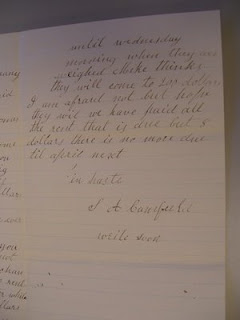 until wednesday
morning when they are
weighed Mike thinks
they will come to 200 dollars
I am afraid not but hope
they will we have paid all
the rent that is due but 5
dollars there is no more due
til april next
in haste
S A
write soon